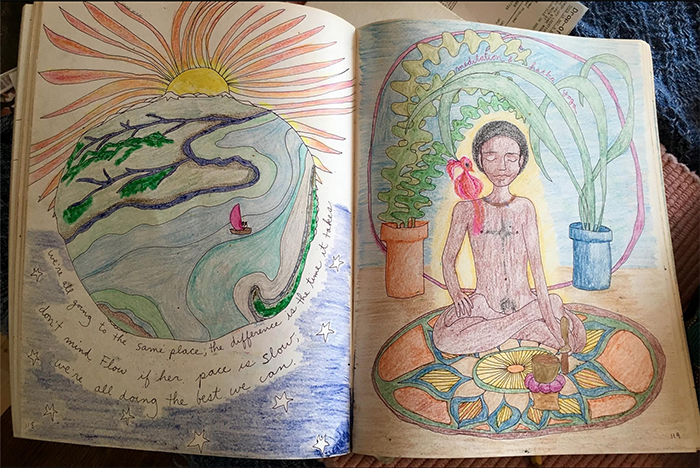 we're all going to the same place, the difference is the time it takes
don't mind Flow if her pace is slow,
we're all doing the best we can.
meditation
119